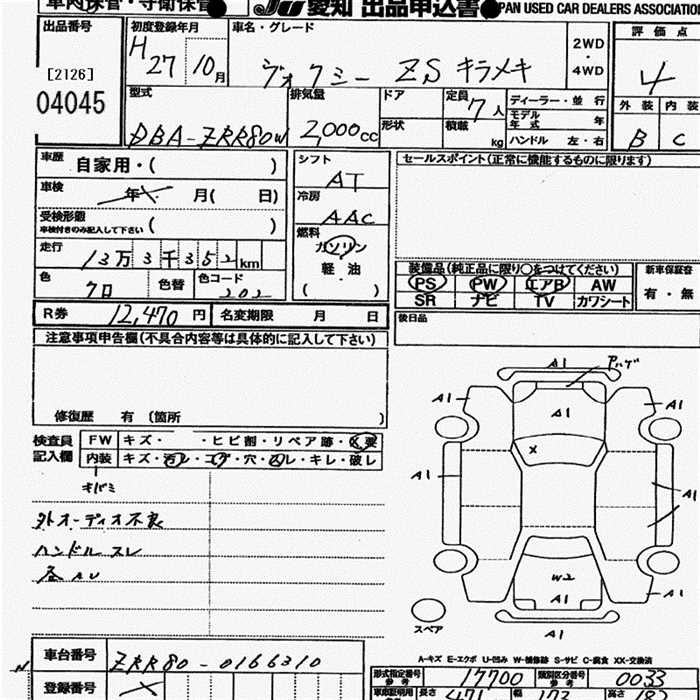 車内保管・守衛保管
JU愛知 出品申込書 PAN USED CAR DEALERS ASSOCIATION
出品番号
[2126]
04045
初度登録年月
H 27 10月
車名・グレード
ヴォクシー ZS キラメキ
2WD
・
4WD
評価点
4
外装 内装
B C
型式
DBA-ZRR80W
排気量
2,000cc
ドア
形状
定員 7人
積載 kg
ディーラー・並行
モデル年式 年
ハンドル 左・右
車歴 自家用・( )
車検 年 月( 日)
受検形態
車検付きのみ記入して下さい ( )
走行 13万3千352km
色 クロ 色替 色コード 202
シフト
AT
冷房
AAC
燃料
ガソリン
・
軽油
( )
セールスポイント(正常に機能するものに限ります)
装備品(純正品に限り○をつけてください)
PS PW エアB AW
SR ナビ TV カワシート
新車保証書
有・無
後日品
R券 12,470円 名変期限 月 日
注意事項申告欄(不具合内容等は具体的に記入して下さい)
修復歴 有 (箇所 )
検査員
記入欄
FW キズ・ ・ヒビ割・リペア跡・X要
内装 キズ・汚レ・コゲ・穴・スレ・キレ・破レ
外オーディオ不良
ハンドル スレ
各AU
A1
A1
A1
A1
A1
X
A1
A1
W2
A1
A1
A1
スペア
A-キズ E-エクボ U-凹み W-補修跡 S-サビ C-腐食 XX-交換済
車台番号 ZRR80-0166310
登録番号
型式指定番号 参考 17700 類別区分番号 参考 0033
長さ 471 幅 高さ